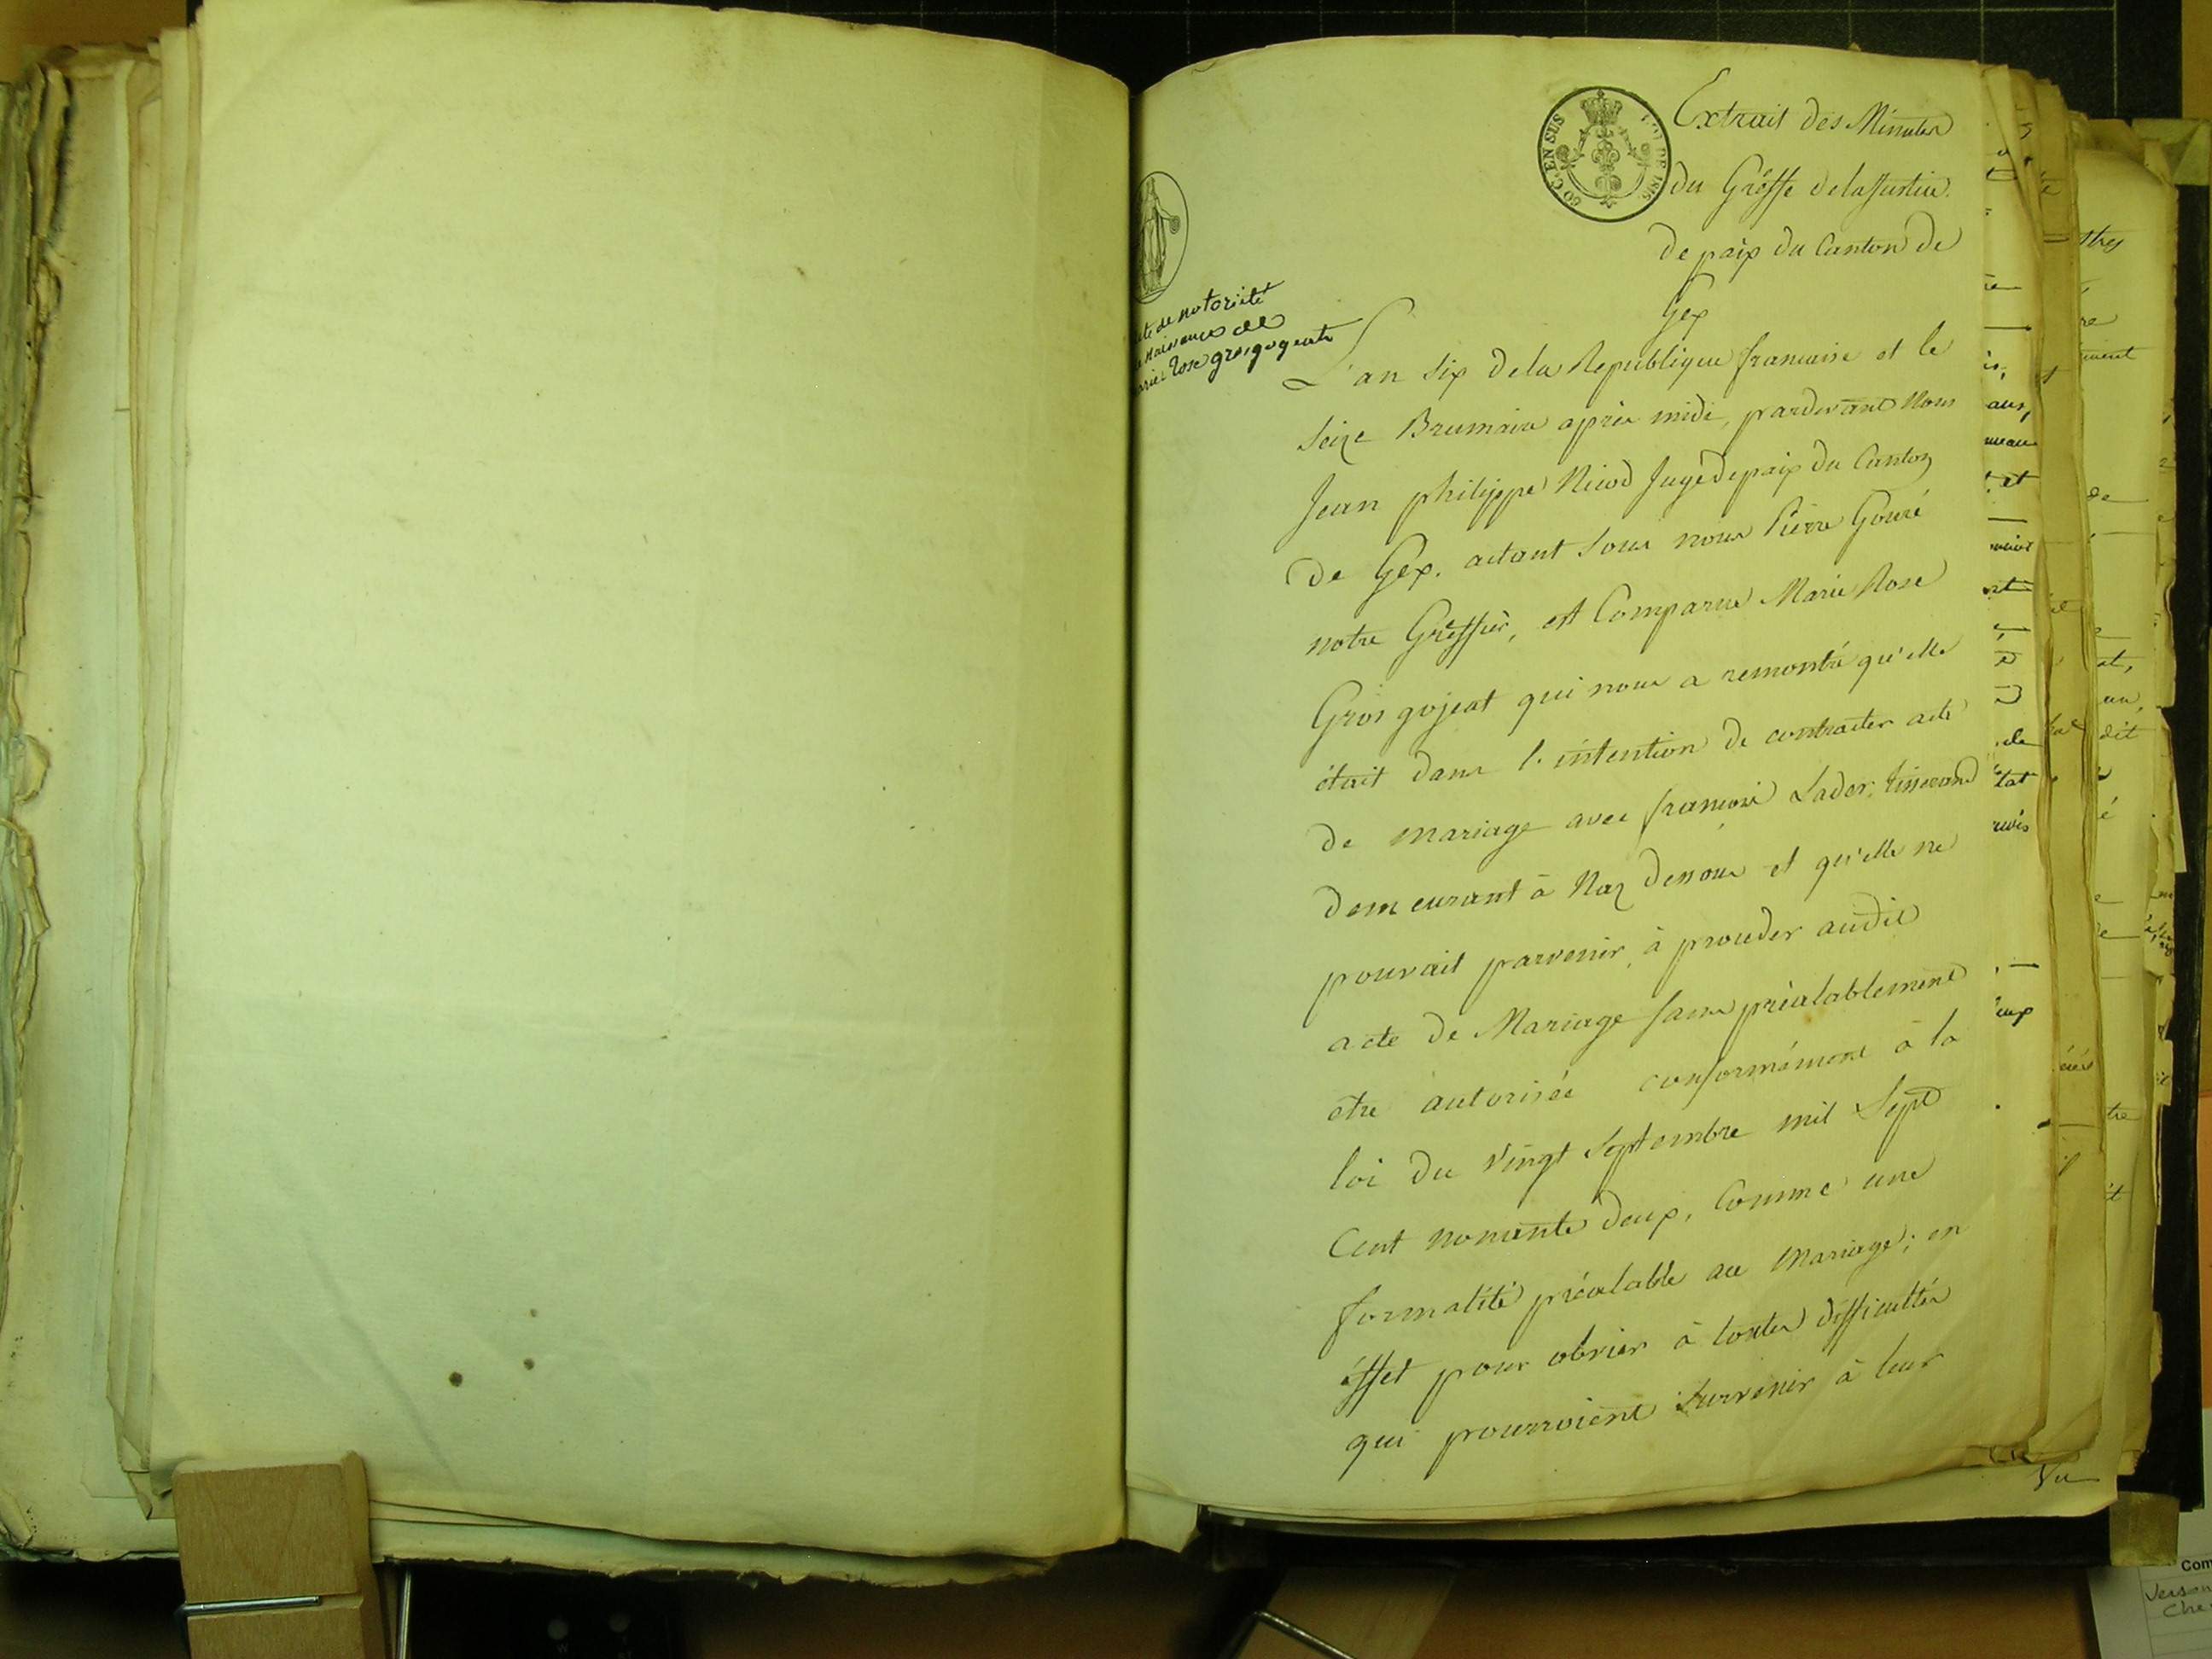 Extrait des Minutes
du Gréffe de la Justice
de paix du Canton de
Gex
60 C. EN SUS
LOI DE 1816
de notoriété
Naissance de
Rose gros gogeat
L'an Six de la Republique francaise et le
Seize Brumaire après midi, pardevant Nous
Jean philippe Nicod Juge de paix du Canton
de Gex. actant sous nous Pierre Gouré
notre Greffier, est Comparue Marie Rose
Gros gojeat qui nous a remontré qu'elle
était dans l'intention de contracter acte
de mariage avec francois Lader, tisserand
demeurant à Naz dessous et qu'elle ne
pouvait parvenir à proceder audit
acte de Mariage sans préalablement
etre autorisée conformément à la
loi du vingt Septembre mil Sept
Cent nonante deux, Comme une
formalité préalable au Mariage; en
éffet pour obvier à toutes difficultés
qui pourroient Survenir à leur